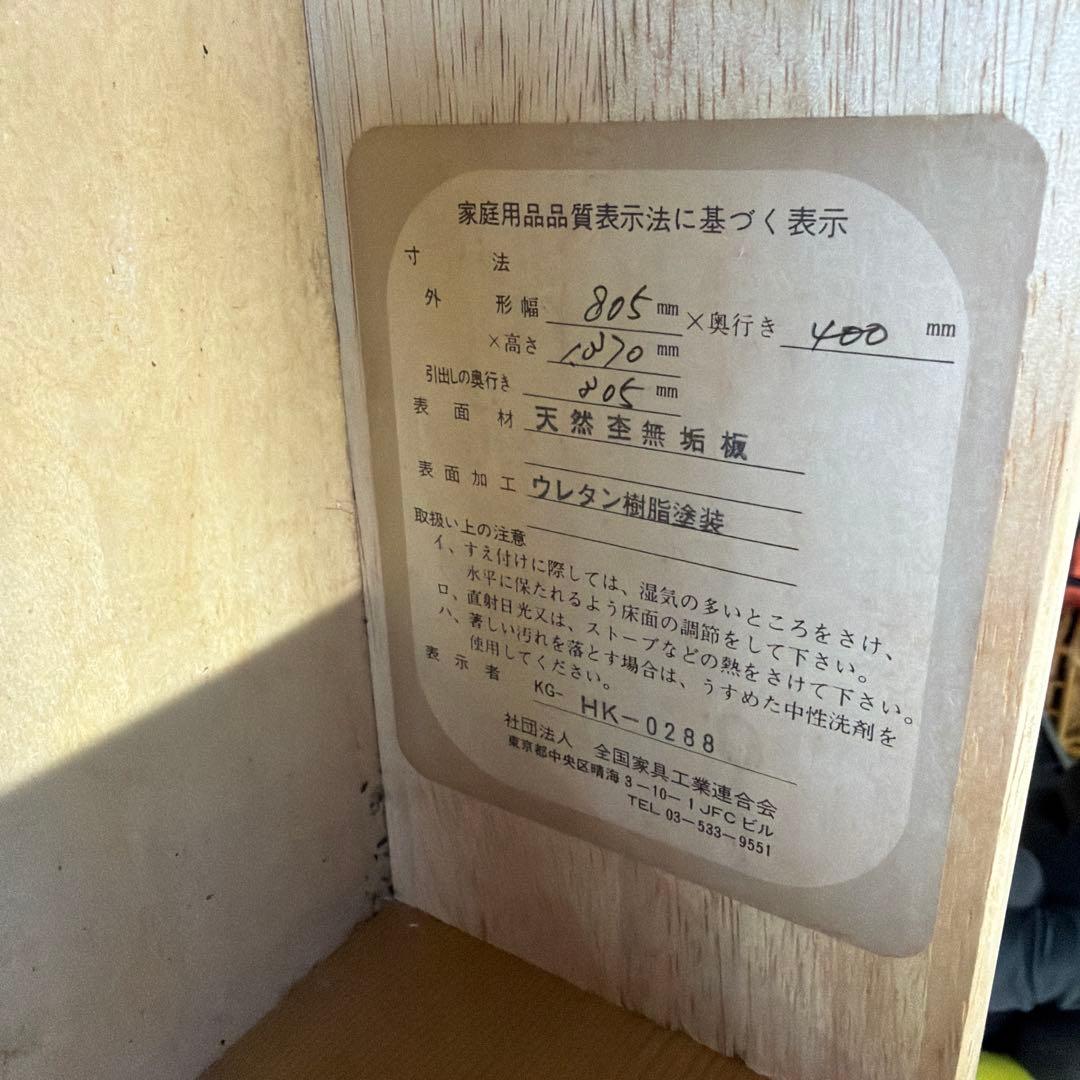 家庭用品品質表示法に基づく表示
寸 法
外 形幅 805 mm ×奥行き 400 mm
×高さ 1870 mm
引出しの奥行き 305 mm
表面材 天然杢無垢板
表面加工 ウレタン樹脂塗装
取扱い上の注意
イ、すえ付けに際しては、湿気の多いところをさけ、
水平に保たれるよう床面の調節をして下さい。
ロ、直射日光又は、ストーブなどの熱をさけて下さい。
ハ、著しい汚れを落とす場合は、うすめた中性洗剤を
使用してください。
表示者 KG- HK-0288
社団法人 全国家具工業連合会
東京都中央区晴海3-10-1JFCビル
TEL 03-533-9551